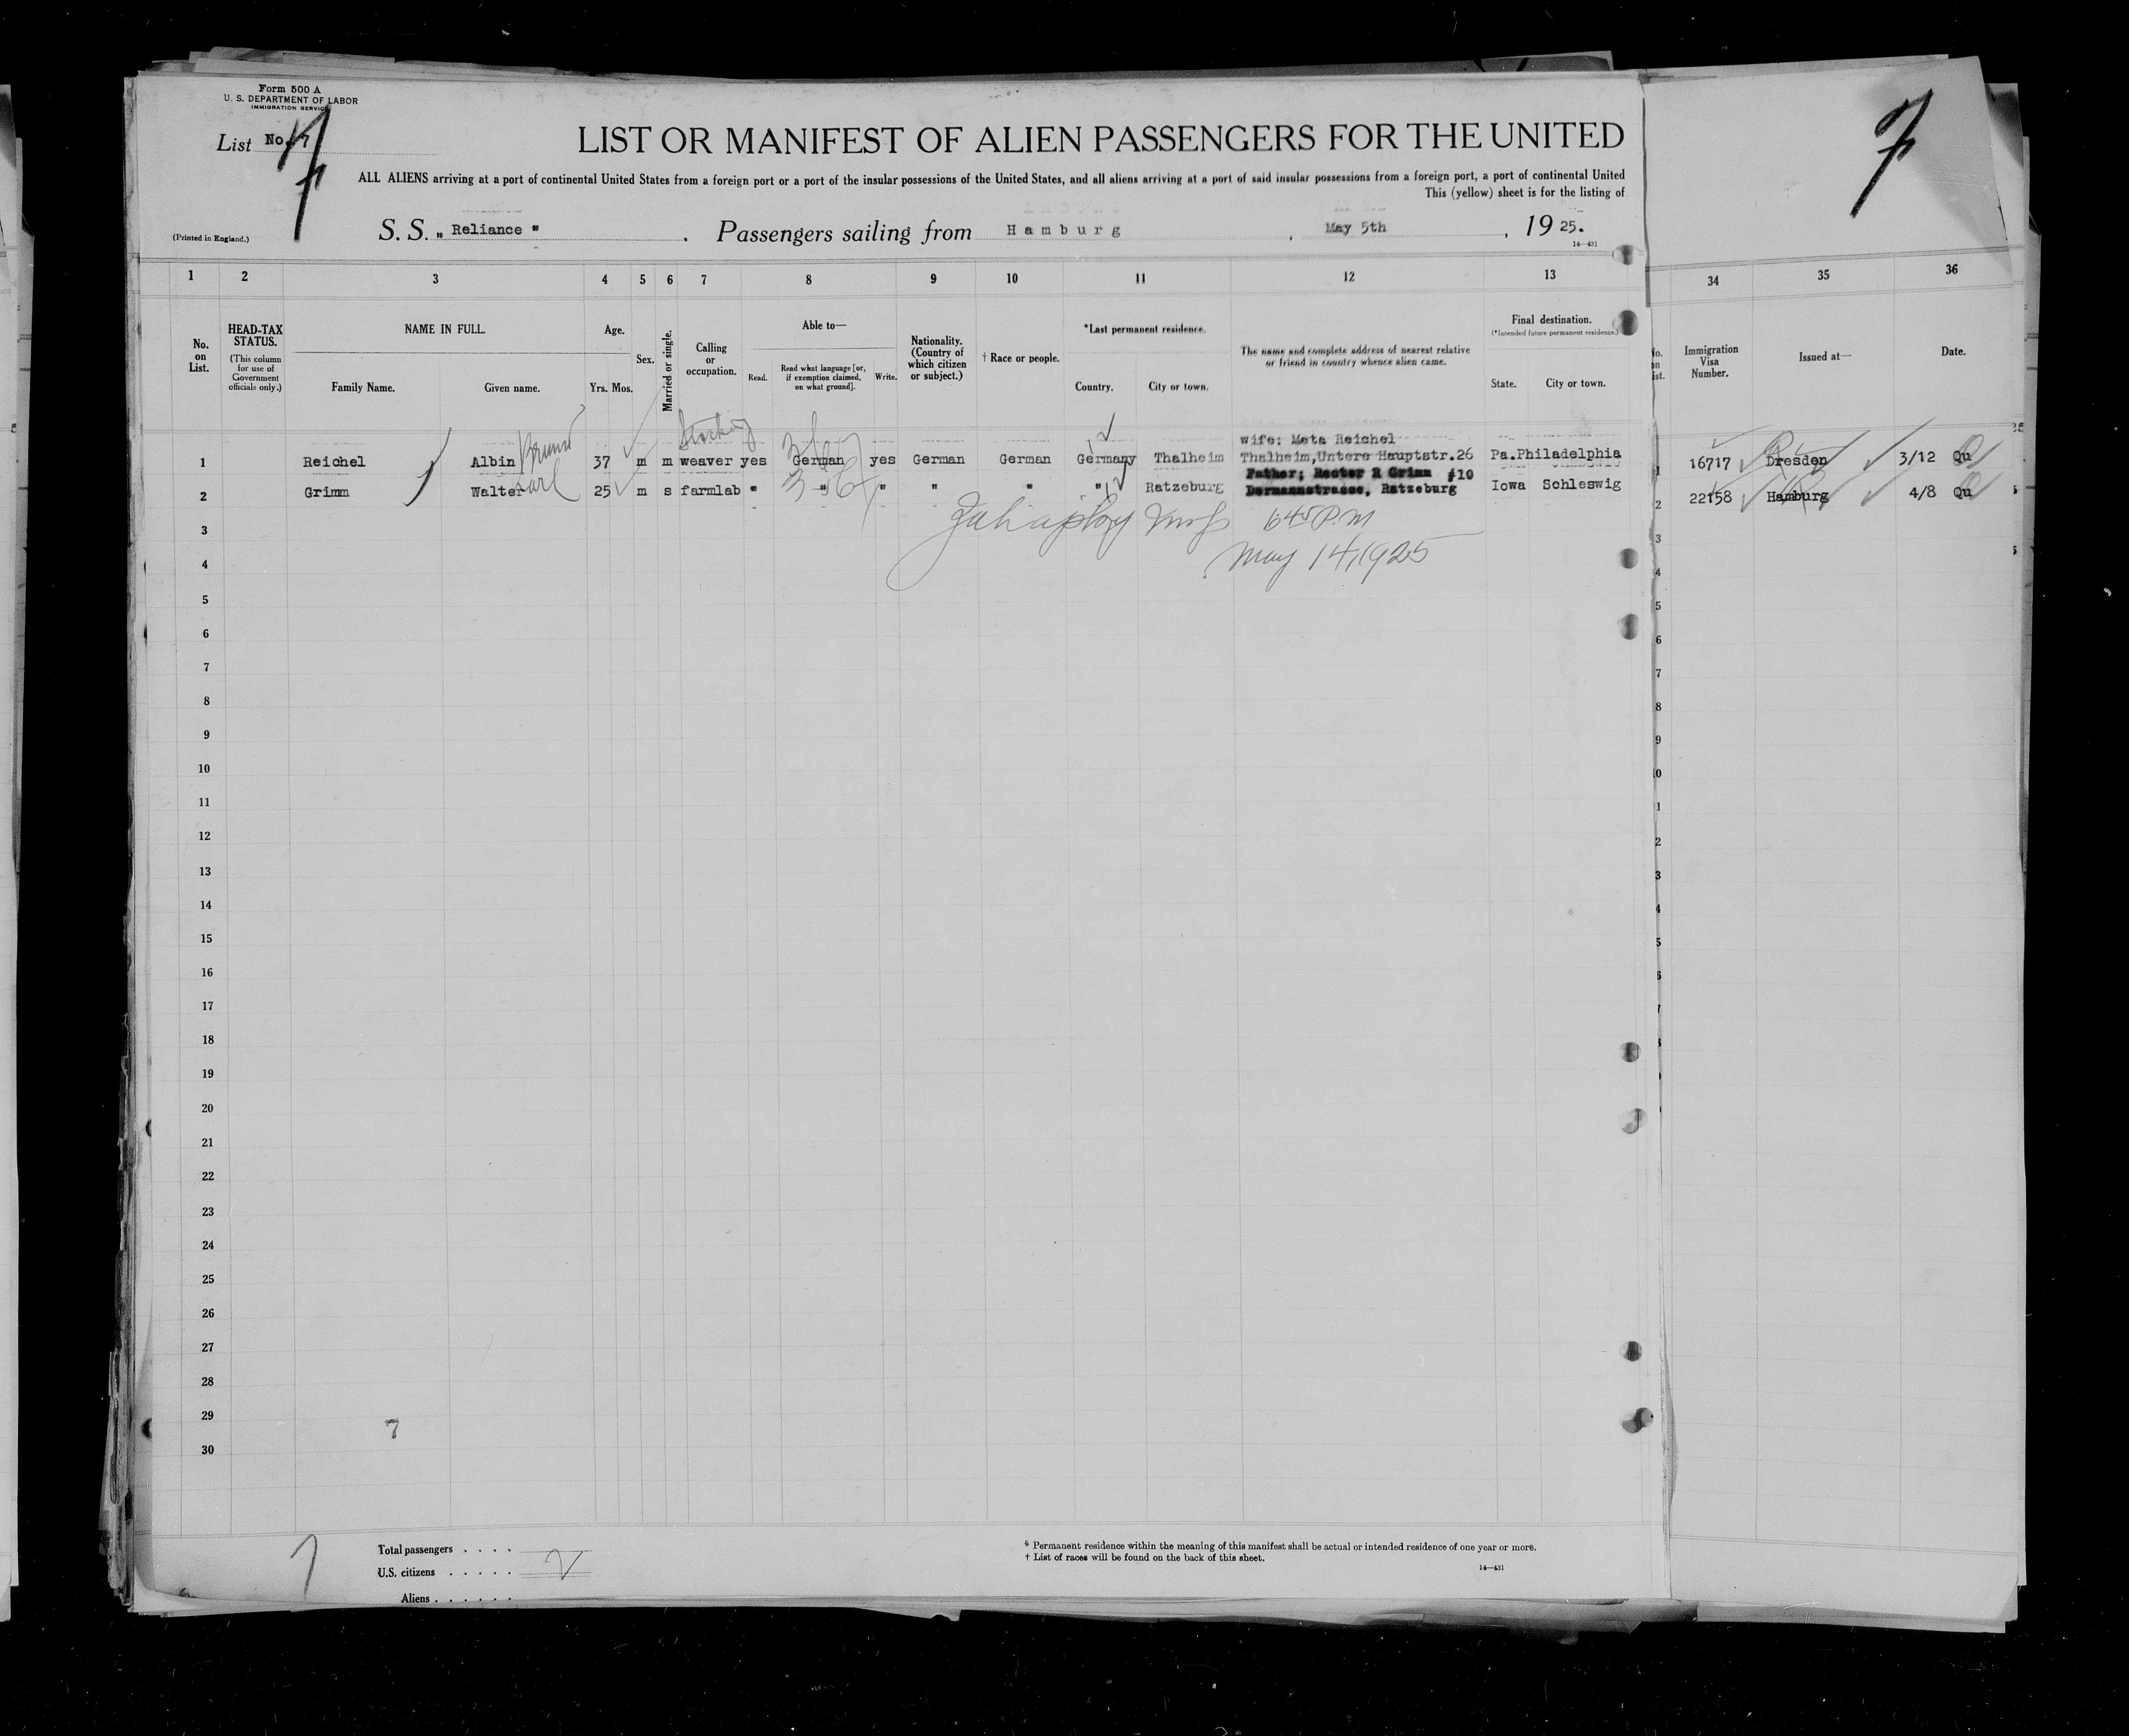 Form 500 A
U. S. DEPARTMENT OF LABOR
IMMIGRATION SERVICE
List No. 7
7
LIST OR MANIFEST OF ALIEN PASSENGERS FOR THE UNITED
ALL ALIENS arriving at a port of continental United States from a foreign port or a port of the insular possessions of the United States, and all aliens arriving at a port of said insular possessions from a foreign port, a port of continental United
This (yellow) sheet is for the listing of
(Printed in England.)
S. S. „ Reliance " . Passengers sailing from Hamburg , May 5th , 19 25.
14—431
1 2 3 4 5 6 7 8 9 10 11 12 13 34 35 36
No. on List.
HEAD-TAX STATUS.
(This column for use of Government officials only.)
NAME IN FULL.
Family Name. Given name.
Age.
Yrs. Mos.
Sex.
Married or single.
Calling or occupation.
Able to—
Read. Read what language [or, if exemption claimed, on what ground]. Write.
Nationality. (Country of which citizen or subject.)
† Race or people.
*Last permanent residence.
Country. City or town.
The name and complete address of nearest relative or friend in country whence alien came.
Final destination.
(*Intended future permanent residence.)
State. City or town.
Immigration Visa Number.
Issued at—
Date.
Bruno
wife: Meta Reichel
1 Reichel Albin 37 m m weaver yes German yes German German Germany Thalheim Thalheim,Untere Hauptstr.26 Pa.Philadelphia 16717 Dresden 3/12 Qu
Father; Rector R Grimm #10
2 Grimm Walter Carl 25 m s farmlab " " " " " " Ratzeburg Dermannstrasse, Ratzeburg Iowa Schleswig 22158 Hamburg 4/8 Qu
3
6 45 P.M
4
May 14, 1925
5
6
7
8
9
10
11
12
13
14
15
16
17
18
19
20
21
22
23
24
25
26
27
28
29
7
30
Total passengers . . . .
U.S. citizens . . . . .
Aliens . . . . . .
* Permanent residence within the meaning of this manifest shall be actual or intended residence of one year or more.
† List of races will be found on the back of this sheet.
14—431